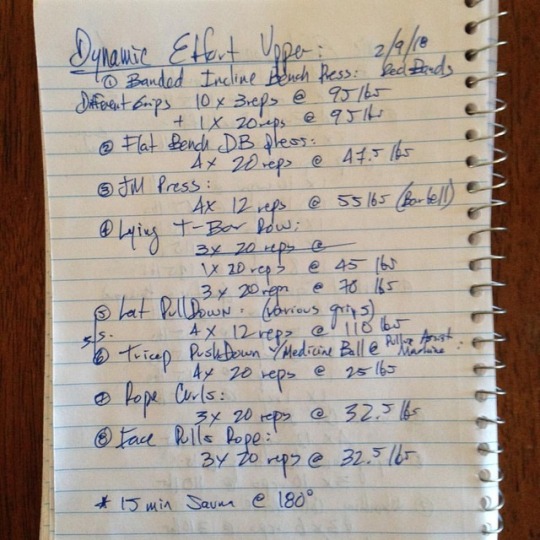 Dynamic Effort Upper: 2/9/18
① Banded Incline Bench Press: Red Bands
Different Grips 10 x 3 reps @ 95 lbs
+ 1 x 20 reps @ 95 lbs
② Flat Bench DB Press:
4 x 20 reps @ 47.5 lbs
③ JM Press:
4 x 12 reps @ 55 lbs (Barbell)
④ Lying T-Bar Row:
3 x 20 reps @
1 x 20 reps @ 45 lbs
3 x 20 reps @ 70 lbs
⑤ Lat Pull Down: (various grips)
s.s. 4 x 12 reps @ 110 lbs
⑥ Tricep PushDown w/Medicine Ball @ Pullup Assist Machine:
4 x 20 reps @ 25 lbs
⑦ Rope Curls:
3 x 20 reps @ 32.5 lbs
⑧ Face Pulls Rope:
3 x 20 reps @ 32.5 lbs
* 15 min Sauna @ 180°